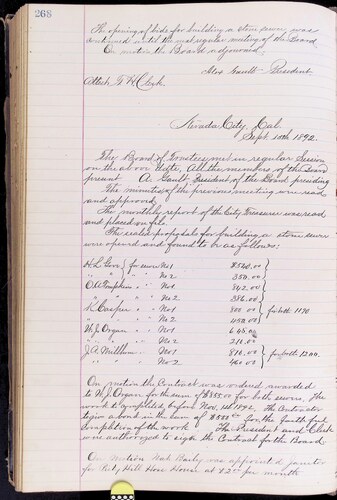 268
The opening of bids for building a stone sewer was
continued until the next regular meeting of the Board
On motion the Board adjourned.
President
Attest Clerk
Nevada City, Cal.
Sept 10th 1892.
The Board of Trustees met in regular Session
on the above date, All the members of the Board
present A. Gault President of the Board presiding
The minutes of the previous meeting were read
and approved
The monthly report of the City Treasurer was read
and placed on file
The sealed proposals for building a stone sewer
were opened and found to be as follows:
for sewer No 1 $520.00
" " No 2 350.00
O.A. Tompkins " " No 1 842.00
" " No 2 386.00
Casper " " No 1 for both 1170
" " No 2 450.00
W.J. Organ " " No 1 645.00
" " No 2 211.00
J.A. " " No 1 810.00 for both 1200.
" " No 2 460.00
On motion the Contract was ordered awarded
to W.J. Organ for the sum of $855.00 for both sewers, The
work to be completed before Nov. 1st 1892, The Contractor
to give a bond in the sum of for the faithful
completion of the work The President and Clerk
were authorized to sign the Contract for the Board
On Motion was appointed janitor
for Piety Hill Hose House at per month